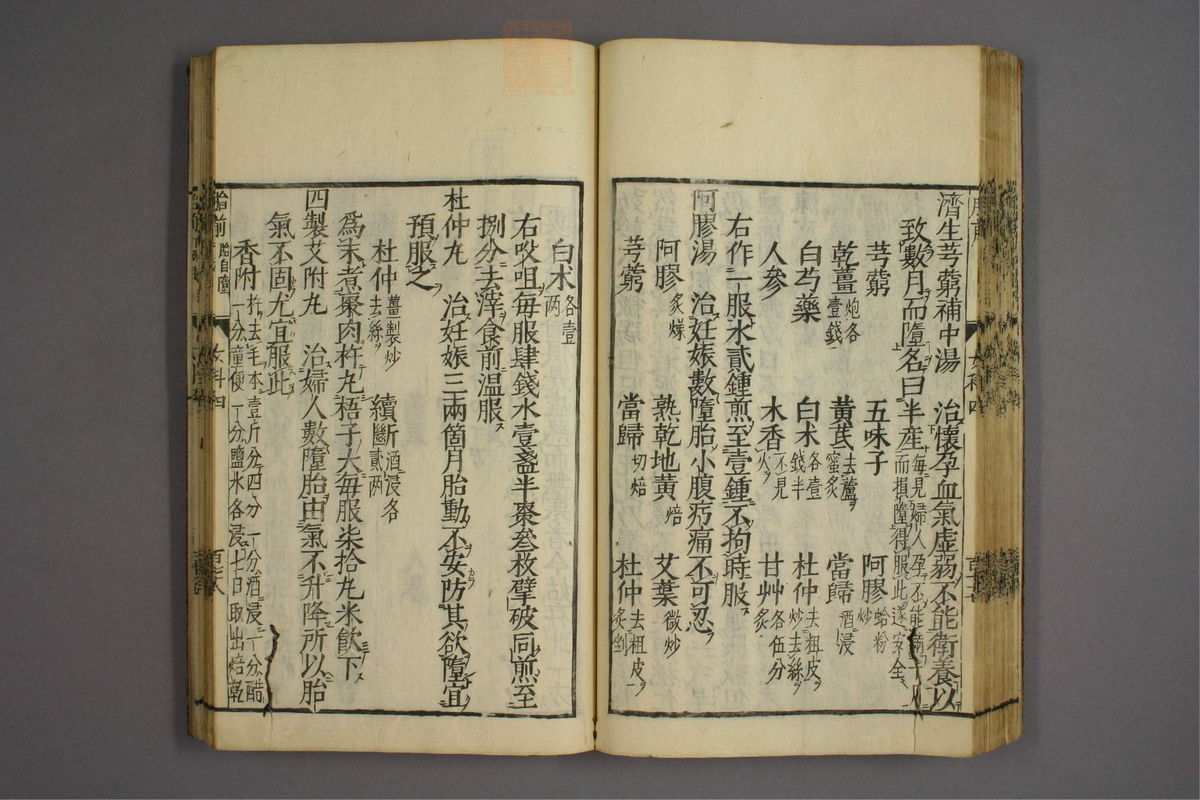 濟生芎藭補中湯　治懷孕血氣虛弱不能衛養以
致數月而墮名曰半産每見婦人孕不能滿十月而損墮得服此遂安全
芎藭　五味子　阿膠蛤粉炒
乾薑炮各壹錢　黃芪去蘆蜜炙　當歸酒浸
白芍藥　白朮各壹錢半　杜仲去粗皮炒去絲
人參　木香不見火　甘艸炙各伍分
右作一服水貳鍾煎至壹鍾不拘時服
阿膠湯　治妊娠數墮胎小腹㽲痛不可忍
阿膠炙燥　熟乾地黃焙　艾葉微炒
芎藭　當歸切焙　杜仲去粗皮炙剉
白朮各壹两
右㕮咀每服肆錢水壹盞半棗叁枚擘破同煎至
捌分去滓食前温服
杜仲丸　治妊娠三兩箇月胎動不安防其欲墮宜
預服之
杜仲薑製炒去絲　續斷酒浸各貳两
爲末煮棗肉杵丸梧子大每服柒拾丸米飲下
四製艾附丸　治婦人數墮胎由氣不升降所以胎
氣不固尤宜服此
香附杵去毛本壹斤分四分一分酒浸一分醋一分童便一分鹽水各浸七日取出焙乾
胎前　胎自墮　女科四